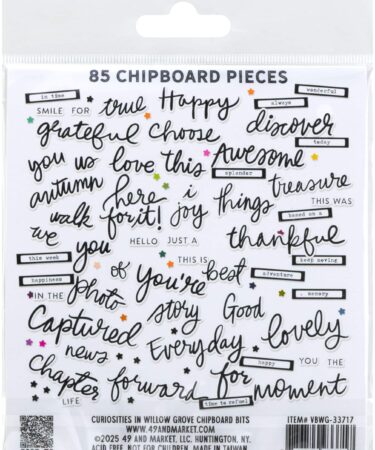 85 CHIPBOARD PIECES
in time
wonderful
SMILE FOR
true
Happy
always
grateful
choose
discover
today
you
us
love
this
Awesome
splendor
autumn
here
i
things
treasure
walk
for
it!
joy
THIS WAS
based on a
we
you
HELLO
JUST A
thankful
this week
of
THIS IS
keep moving
happiness
you're
best
adventure
IN THE
photo
memory
story
Good
Captured
Everyday
lovely
news
happy
YOU THE
chapter
forward
for
moment
LIFE
time to refuel
CURIOSITIES IN WILLOW GROVE CHIPBOARD BITS
WWW.49ANDMARKET.COM
©2025 49 AND MARKET, LLC. HUNTINGTON, NY.
ACID FREE. NOT FOR CHILDREN. MADE IN TAIWAN
ITEM# VBWG-33717